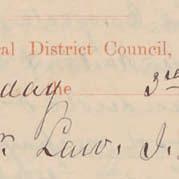 al District Council,
day the 3rd
r. Law. J.